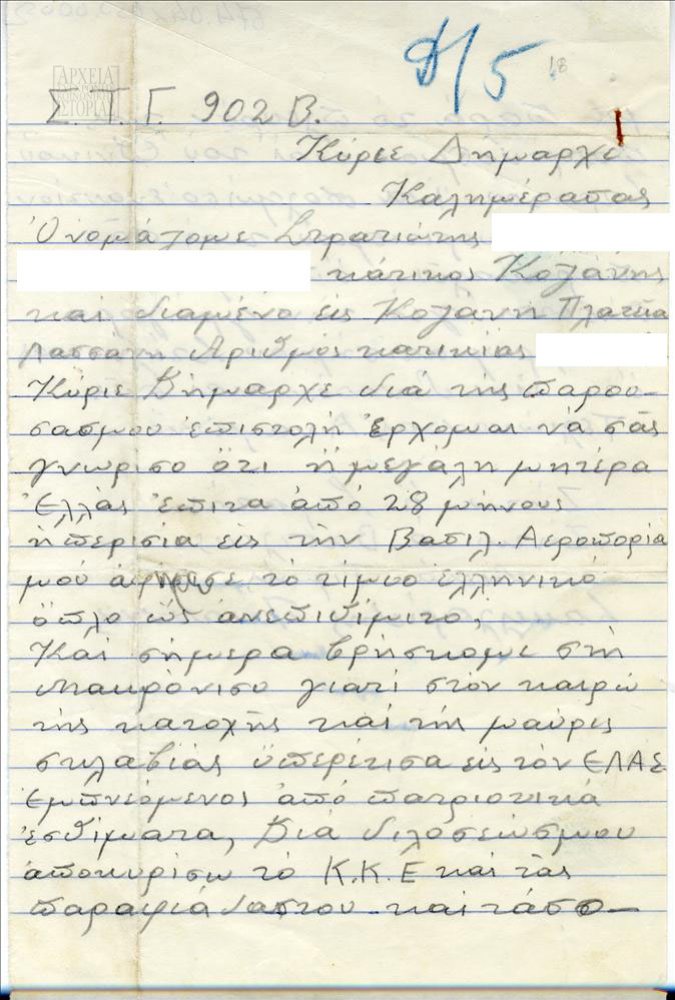 Δ/5
18
ΑΡΧΕΙΑ
ΙΣΤΟΡΙΑΣ
Σ.Τ.Γ. 902 Β.
Κύριε Δήμαρχε
Καλημέρασας
Ὀνομάζομε Στρατιώτης
κάτικος Κοζάνης
καί διαμένο εἰς Κοζάνη Πλατεία
Λασσάνη Ἀριθμός κατικίας
Κύριε Δήμαρχε διά τῆς παρου-
σασμου ἐπιστολή ἔρχομαι νά σᾶς
γνωρίσο ὅτι ἡ μεγάλη μητέρα
Ἑλλάς ἔπιτα ἀπό 28 μήνους
ἡπερισία εἰς τήν Βασιλ. Αεροπορία
μού ἀφησε τό τίμιο ἑλληνικό
ὅπλο ὡς ἀνεπιθίμιτο,
Καί σήμερα βρήσκομε στή
Μακρόνισο γιατί στόν καιρώ
τῆς κατοχῆς καί τῆς μαύρις
σκλαβιάς ὑπερέτισα εἰς τόν ΕΛΑΣ
Ἐμπνεόμενος ἀπό πατριοτικά
ἐσθίματα, Διά διλοσεώσμου
ἀποκυρίσω τό Κ.Κ.Ε καί τάς
παραφιάδαςτου καί τάσσο-